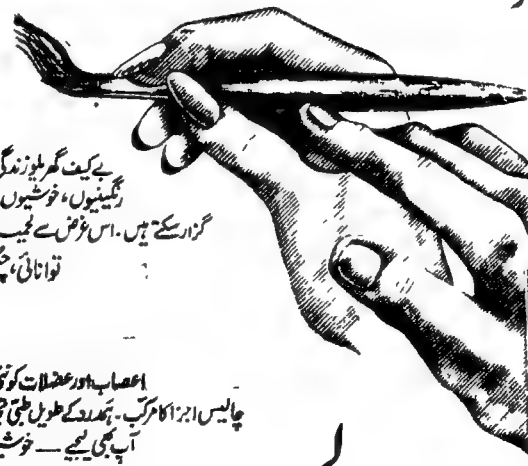 بے کیف گھریلو زندگی
رنگینیوں، خوشیوں
گزار سکتے ہیں۔ اس غرض سے لحیب
توانائی،
اعصاب اور عضلات کو نئی
چالیس اجزا کا مرکب۔ ہمدرد کے طویل طبی
آپ بھی لیجیے — خوشی